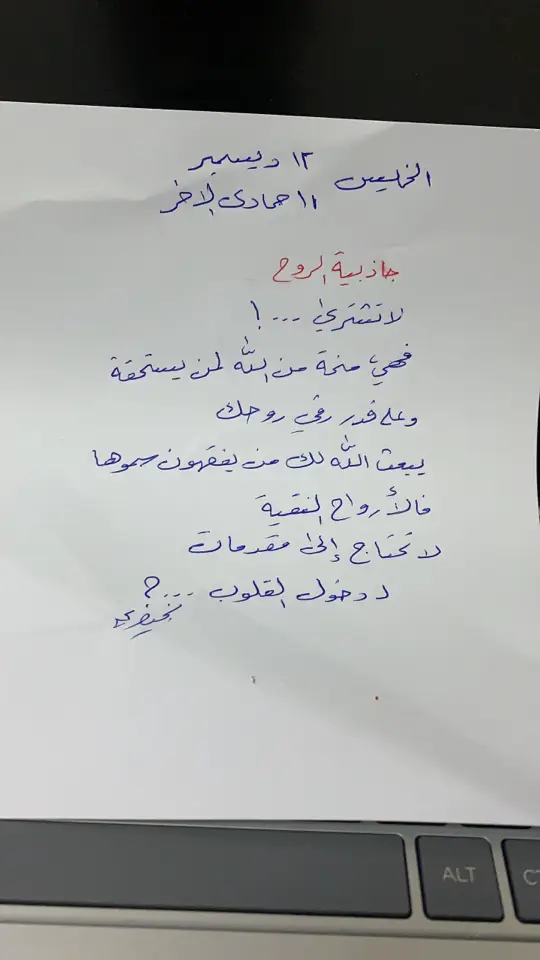 ١٢ ديسمبر
الخميس
١١ جمادى الاخر
جاذبية الروح
لا تشترىٰ ...!
فهي منحة من اللّٰه لمن يستحقة
وعلى قدر رقي روحك
يبعث اللّٰه لك من يفقهون سموها
فالأرواح النقية
لا تحتاج إلىٰ مقدمات
لدخول القلوب ...؟
ALT